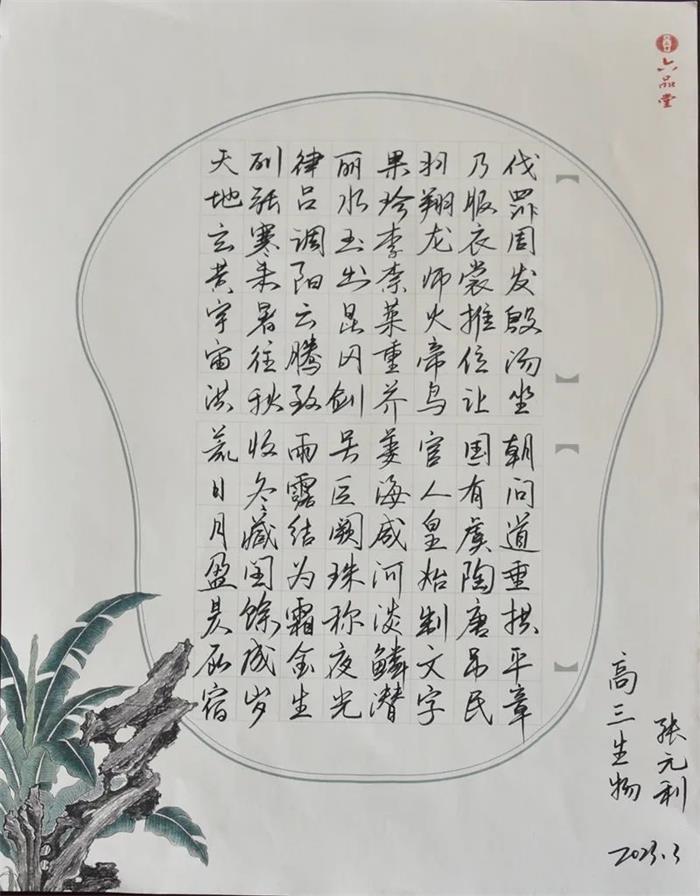 天地玄黄宇宙洪荒日月盈昃辰宿
列张寒来暑往秋收冬藏闰馀成岁
律吕调阳云腾致雨露结为霜金生
丽水玉出昆冈剑号巨阙珠称夜光
果珍李柰菜重芥姜海咸河淡鳞潜
羽翔龙师火帝鸟官人皇始制文字
乃服衣裳推位让国有虞陶唐吊民
伐罪周发殷汤坐朝问道垂拱平章
高三生物
张元利
2023.3
六品堂